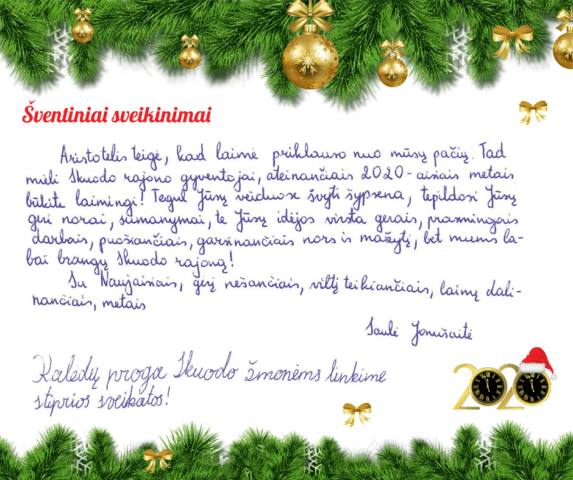 Šventiniai sveikinimai
Aristotelis teigė, kad laimė priklauso nuo mūsų pačių. Tad
mieli Skuodo rajono gyventojai, ateinančiais 2020-aisiais metais
būkite laimingi! Tegul Jūsų veiduose švyti šypsena, tepildosi Jūsų
geri norai, sumanymai, te Jūsų idėjos virsta gerais, prasmingais
darbais, puošiančiais, garsinančiais nors ir mažytį, bet mums la-
bai brangų Skuodo rajoną!
Su Naujaisiais, gėrį nešančiais, viltį teikiančiais, laimę dali-
nančiais, metais
Saulė Jonušaitė
Kalėdų proga Skuodo žmonėms linkime
stiprios sveikatos!
2020